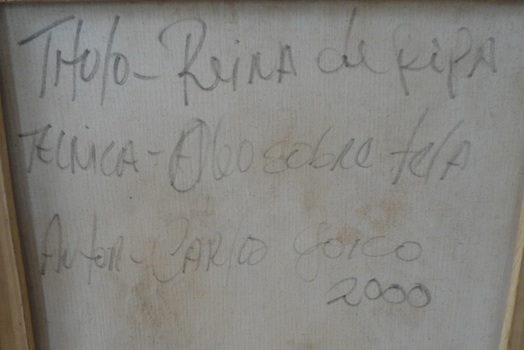 Titulo - Reina de Ripa
Tecnica - Oleo sobre tela
Autor - Carlo Goico
2000